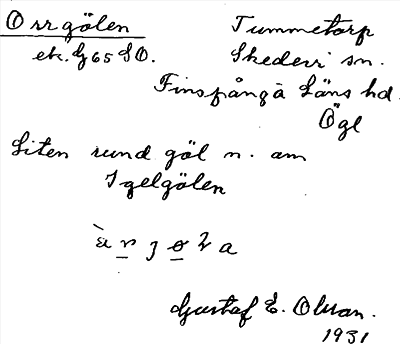 Orrgölen
ek. G 65 SO.
Tummetorp
Skedevi sn.
Finspånga Läns hd.
Ögl
Liten rund göl n. om
Igelgölen
Gustaf E. Olsson.
1931